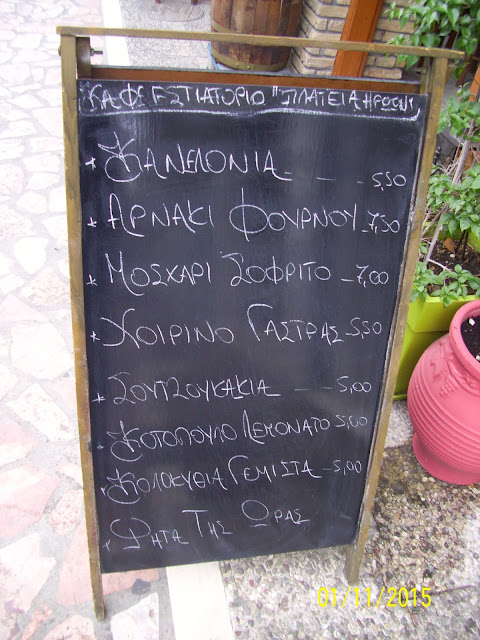 ΚΑΦΕ ΕΣΤΙΑΤΟΡΙΟ "ΠΛΑΤΕΙΑ ΗΡΩΩΝ"
* ΚΑΝΕΛΟΝΙΑ - - - 5,50
* ΑΡΝΑΚΙ ΦΟΥΡΝΟΥ - 7,50
* ΜΟΣΧΑΡΙ ΣΟΦΡΙΤΟ - 7,00
* ΧΟΙΡΙΝΟ ΓΑΣΤΡΑΣ - 5,50
* ΣΟΥΤΖΟΥΚΑΚΙΑ - - 5,00
* ΚΟΤΟΠΟΥΛΟ ΛΕΜΟΝΑΤΟ 5,00
* ΚΟΛΟΚΥΘΙΑ ΓΕΜΙΣΤΑ - 5,00
* ΨΗΤΑ ΤΗΣ ΩΡΑΣ
01/11/2015